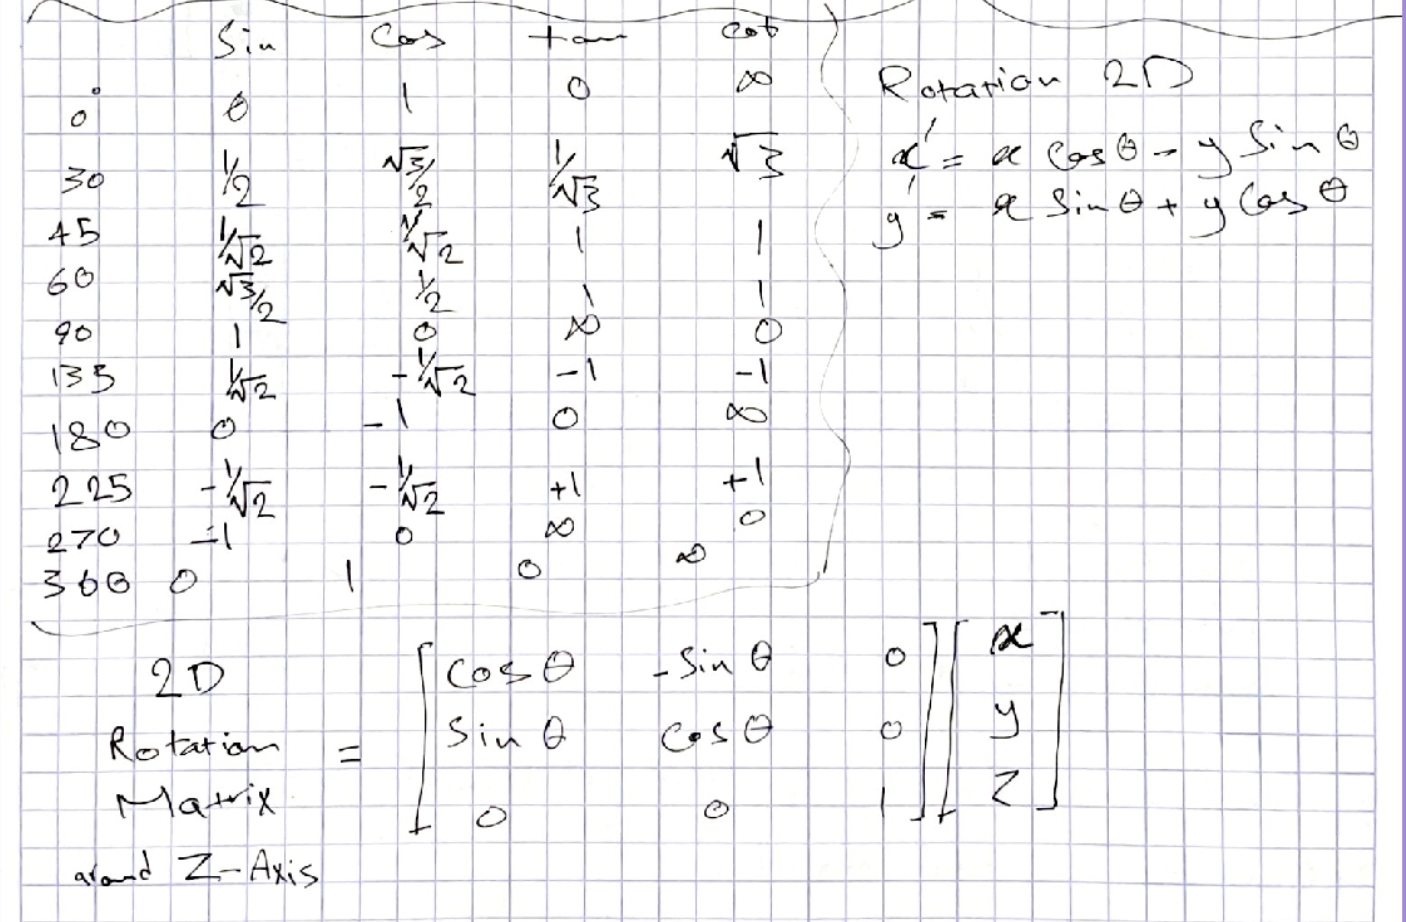 Sin Cos tan cot
0° 0 1 0 ∞
30 1/2 √3/2 1/√3 √3
45 1/√2 1/√2 1 1
60 √3/2 1/2 1 1
90 1 0 ∞ 0
135 1/√2 -1/√2 -1 -1
180 0 -1 0 ∞
225 -1/√2 -1/√2 +1 +1
270 -1 0 ∞ 0
360 0 1 0 ∞
Rotation 2D
x' = x Cos θ - y Sin θ
y' = x Sin θ + y Cos θ
2D
Rotation =
Matrix
around Z-Axis
[ Cos θ -Sin θ 0 ] [ x ]
[ Sin θ Cos θ 0 ] [ y ]
[ 0 0 1 ] [ Z ]